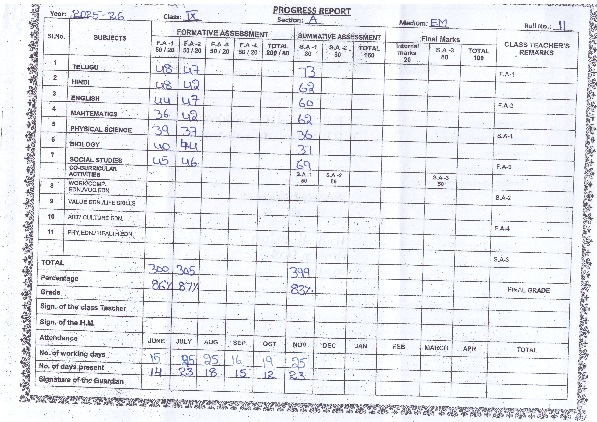 PROGRESS REPORT
Year: 2025-26 Class: IX Section: A Medium: EM Roll No.: 11
FORMATIVE ASSESSMENT SUMMATIVE ASSESSMENT Final Marks
Sl.No. SUBJECTS F.A -1 50 / 20 F.A -2 50 / 20 50 / 20 50 / 20 TOTAL S.A -1 S.A -2 TOTAL Internal marks 20 S.A -3 80 TOTAL 100 CLASS TEACHER'S REMARKS
1 TELUGU 48 47 73 F.A-1
2 HINDI 48 42 62
3 ENGLISH 44 47 60 F.A-2
4 MAHTEMATICS 36 42 62
5 PHYSICAL SCIENCE 39 37 36 S.A-1
6 BIOLOGY 40 44 37
7 SOCIAL STUDIES 45 46 69 F.A-3
CO-CURRICULAR ACTIVITIES S.A-1 S.A-2 S.A-3
8 S.A-2
9 VALUE EDN./LIFE SKILLS
10 ART/ CULTURE EDN. F.A-4
11 PHY.EDN./ HEALTH EDN.
S.A-3
TOTAL 300 305 399
Percentage 86% 87% 83%
Grade FINAL GRADE
Sign. of the class Teacher
Sign. of the H.M.
Attendence JUNE JULY AUG SEP OCT NOV DEC JAN FEB MARCH APR TOTAL
No. of working days 15 25 25 16 19 25
No. of days present 14 23 18 15 12 23
Signature of the Guardian